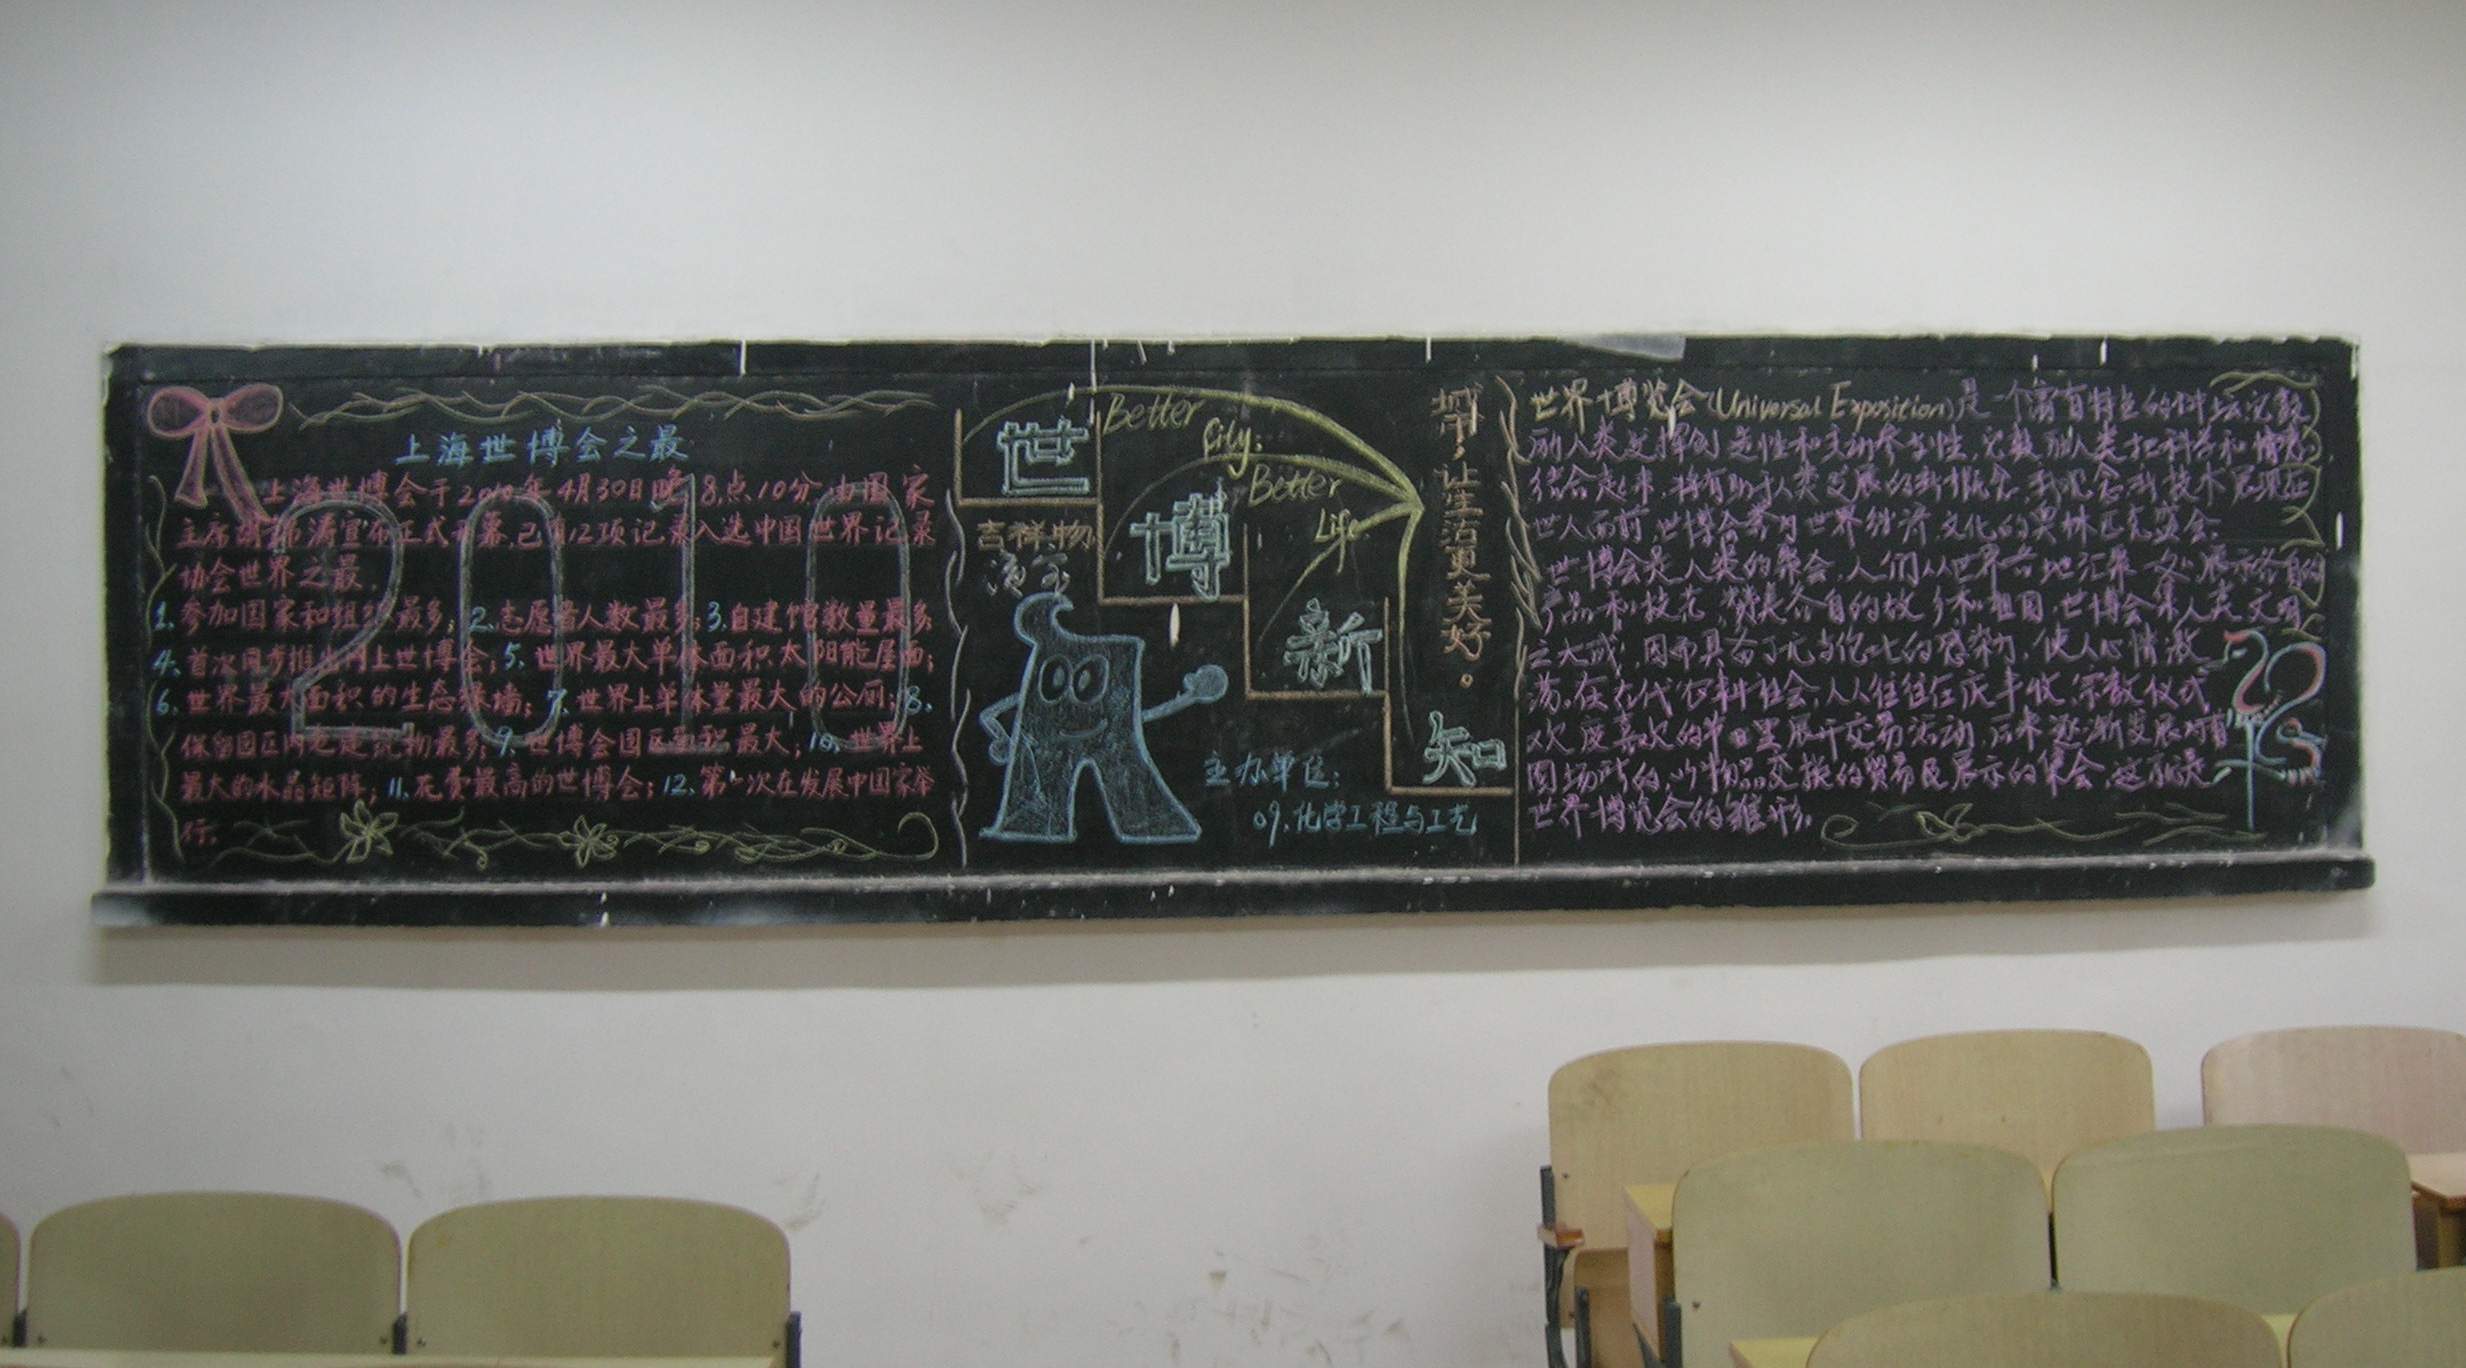 上海世博会之最
上海世博会于2010年4月30日晚8点10分由国家
主席胡锦涛宣布正式开幕,已有12项记录入选中国世界记录
协会世界之最.
1.参加国家和组织最多;2.志愿者人数最多;3.自建馆数量最多
4.首次同步推出网上世博会;5.世界最大单体面积太阳能屋面;
6.世界最大面积的生态绿墙;7.世界上单体量最大的公厕;8.
保留园区内老建筑物最多;9.世博会园区面积最大;10.世界上
最大的水晶矩阵;11.花费最高的世博会;12.第一次在发展中国家举
行.
2010
世博新知
Better
City,
Better
Life
城市,让生活更美好。
吉祥物
海宝
主办单位:
09.化学工程与工艺
世界博览会(Universal Exposition)是一个富有特色的讲坛它鼓
励人类发挥创造性和主动参与性.它鼓励人类把科学和情感
结合起来.将有助于人类发展的新概念.新观念.新技术展现在
世人面前.世博会誉为世界经济.文化的奥林匹克盛会.
世博会是人类的聚会,人们从世界各地汇聚 展示各自的
产品和技艺,赞美各自的故乡和祖国.世博会集人类文明
之大成,因而具备了无与伦比的感染力,使人心情激
荡.在古代农耕社会,人们往往在庆丰收.宗教仪式.
欢度喜庆的节日里展开交易活动,后来逐渐发展为有
固场所的,以物品交换的贸易展示的集会.这就是
世界博览会的雏形.